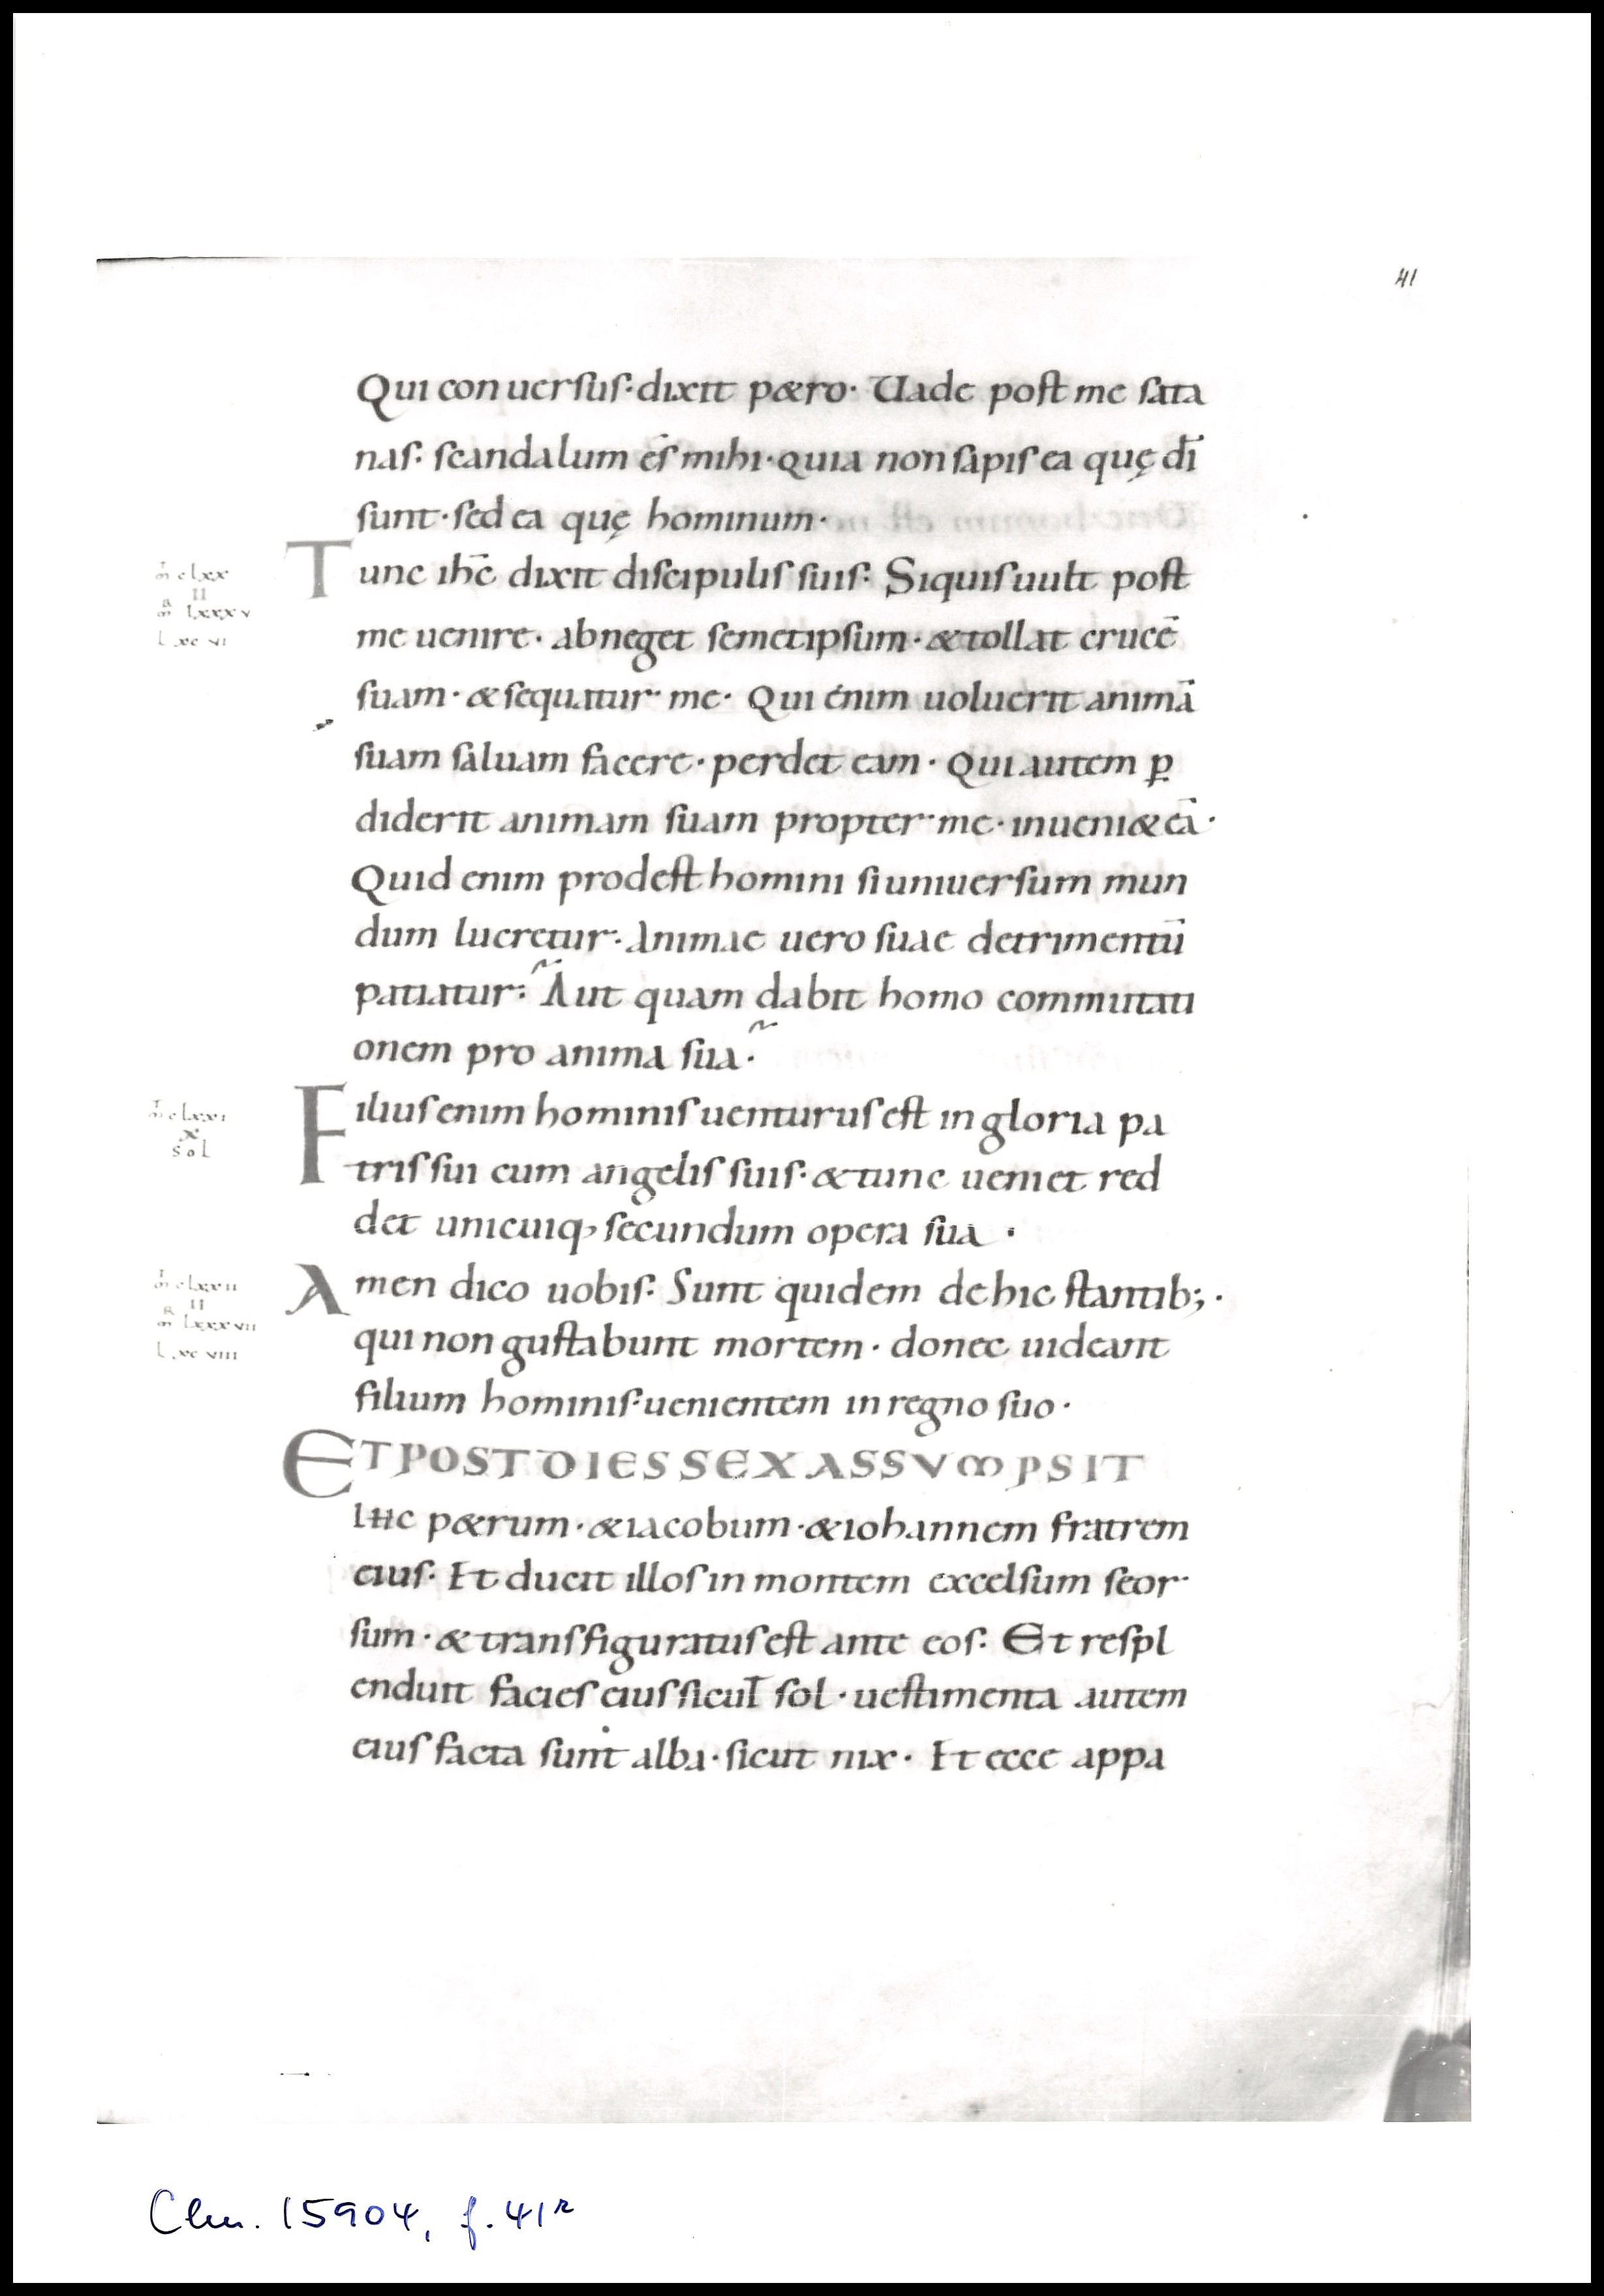 41
Qui conuersus· dixit petro· Uade post me sata
nas· scandalum és mihi· quia non sapis ea quę dī
sunt· sed ea quę hominum·
Tunc ihc̄ dixit discipulis suis· Siquis uult post
me uenire· abneget semetipsum· & tollat crucē
suam· & sequatur me· Qui enim uoluerit animā
suam saluam facere· perdet eam· Qui autem ꝑ
diderit animam suam propter me· inueni& eā·
Quid enim prodest homini si uniuersum mun
dum lucretur· Animae uero suae detrimentū
patiatur· Aut quam dabit homo commutati
onem pro anima sua·
Filius enim hominis uenturus est in gloria pa
tris sui cum angelis suis· & tunc ueniet red
det unicuiq, secundum opera sua ·
Amen dico uobis· Sunt quidem de hic stantib;·
qui non gustabunt mortem· donec uideant
filium hominis· uenientem in regno suo·
ET POST DIES SEX ASSUMPSIT
ihc p&rum· & iacobum· & iohannem fratrem
eius· Et ducit illos in montem excelsum seor
sum· & transfiguratus est ante eos· Et respl
enduit facies eius sicut sol· uestimenta autem
eius facta sunt alba· sicut nix· Et ecce appa
m clxx
II
m lxxxv
L xcvi
m clxxi
x
sol
m clxxii
II
m lxxxvii
L xcviii
Clm. 15904, f. 41r